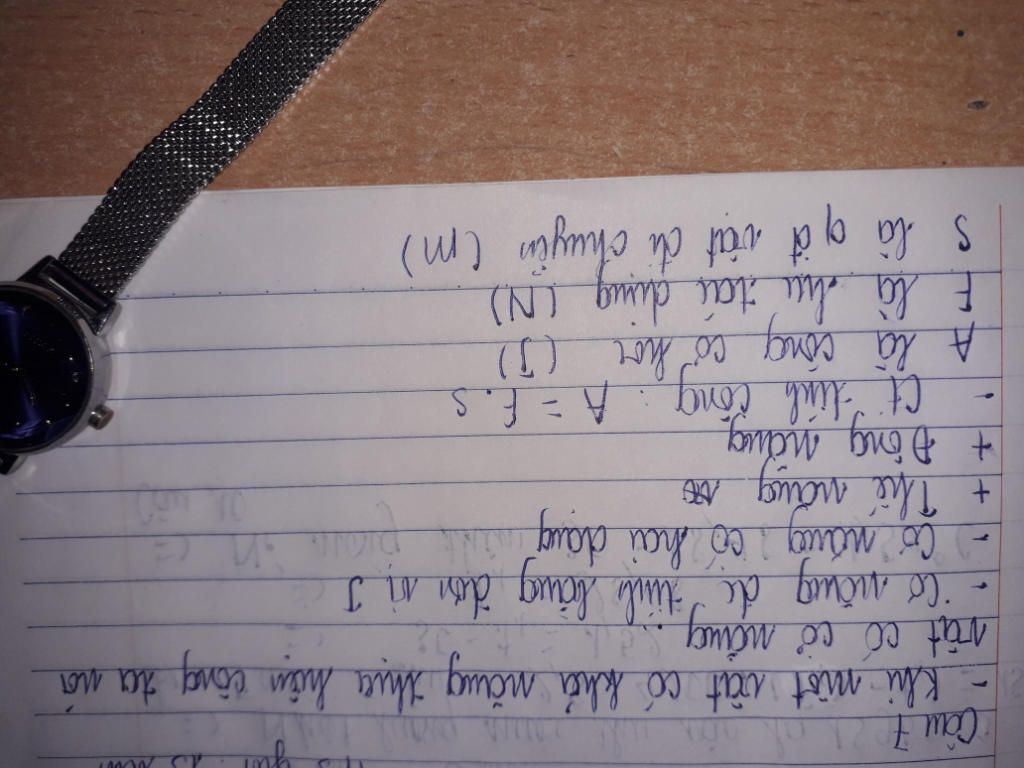 Câu 7
- Khi một vật có khả năng thực hiện công ta nói
vật có cơ năng.
- Cơ năng đc tính bằng đơn vị J
- Cơ năng có hai dạng
+ Thế năng
+ Động năng
- Ct tính công : A = F . S
A là công cơ học (J)
F là lực tác dụng (N)
S là qđ vật di chuyển (m)